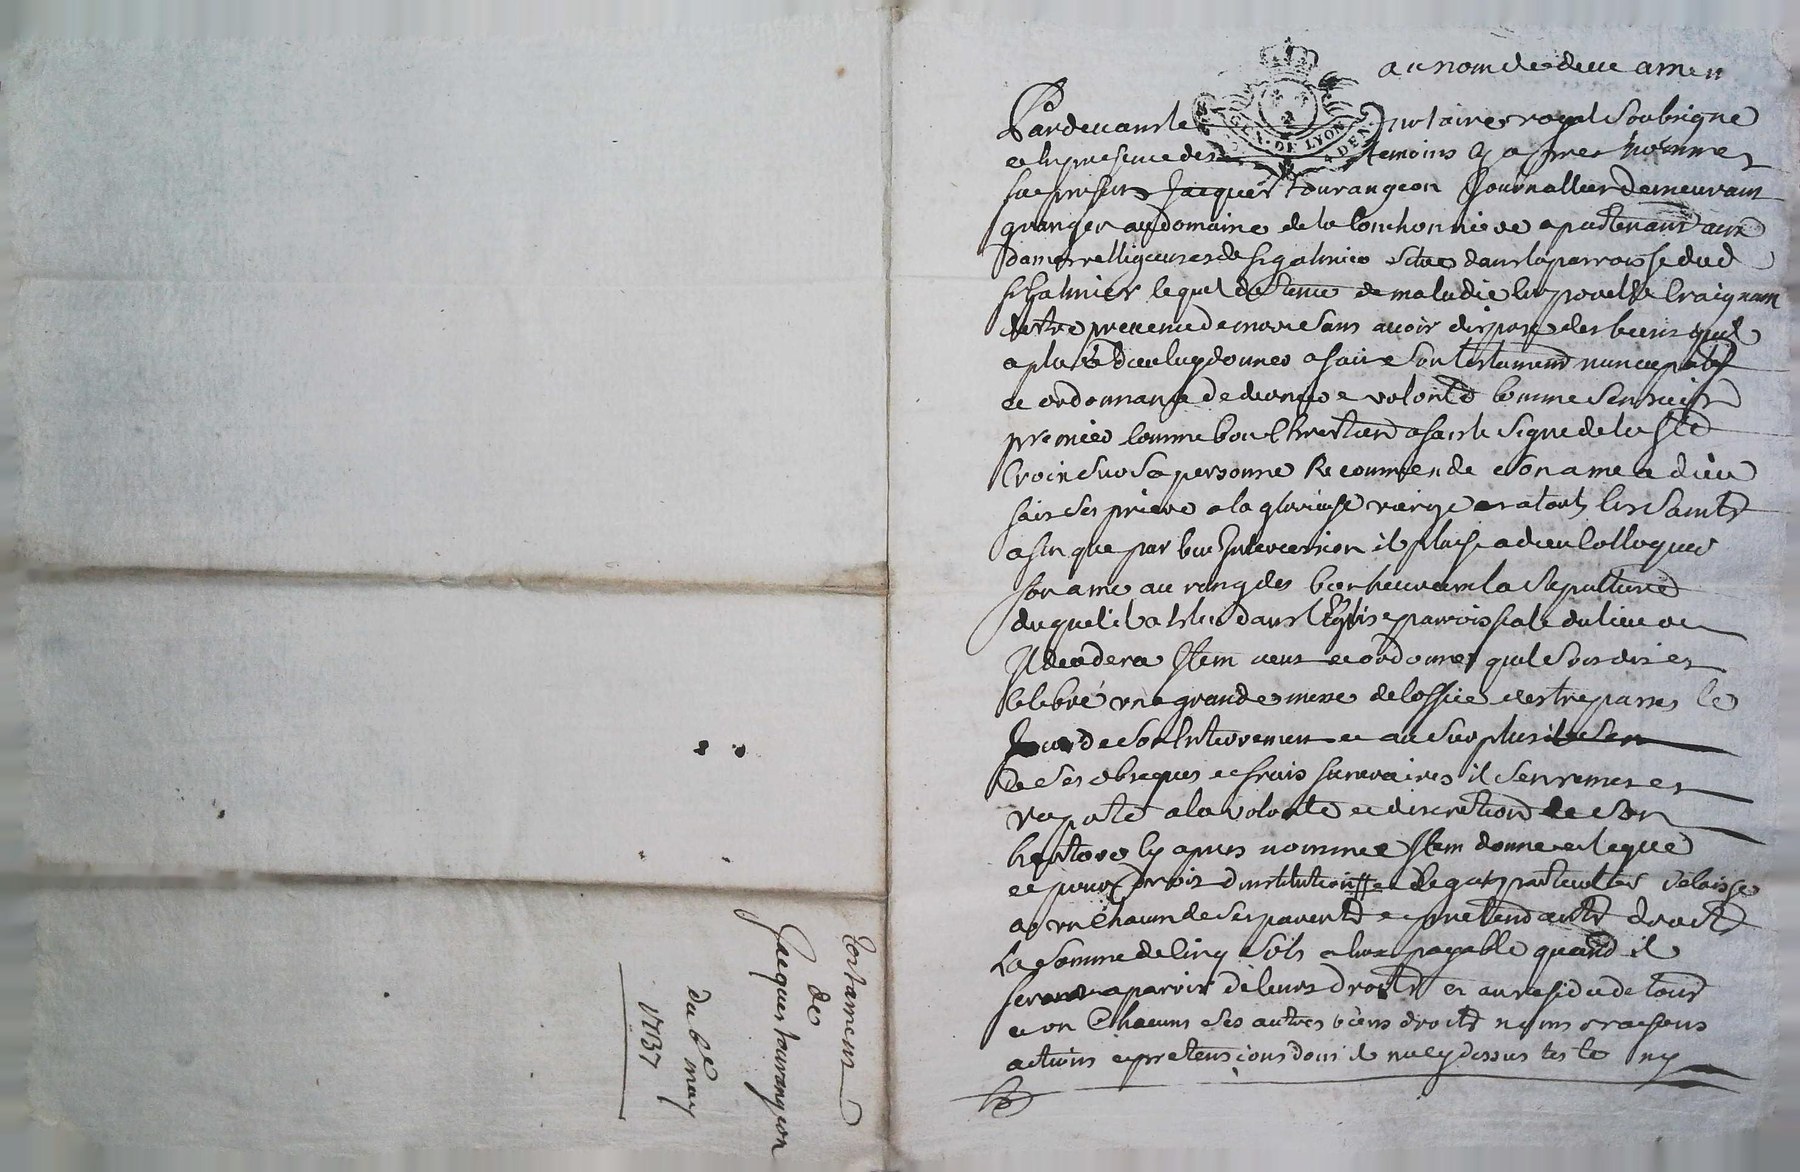 au nom de dieu amen
Pardevant le notaire royal soubsigne
et en presence des temoins cy apres nommes
fut present Jacques tourangeon Journallier demeurant
granger au domaine de la apartenant aux
dames relligieuses de st galmier situe dans la parroisse dud
st galmier lequel detenu de maladie corporelle craignant
destre prevenu de mort sans avoir dispose des biens quil
a plut a dieu luy donner a fait son testament nuncupatif
et ordonnance de derniere volonte comme sensuit
premier comme bon Chrestien a fait le signe de la ste
Croix sur sa personne Recommende son ame a dieu
fait ses priere a la glorieuse vierge et a touts les saints
afin que par leur Intercession il plaise a dieu colloquer
son ame au rang des bienheureux la sepulture
duquel il a eslu dans l'Eglise parroissiale du lieu ou
Il decedera Item veut et ordonnes quil soit dit et
celebré une grande messe de loffice des trepasses le
Jour de son enterrement et au surplus
de ses obseques et frais funeraires il sen remet et
raporte a la volonte et discretion de son
heritiere cy apres nommee Item donne et legue
et pour droit dinstitution et legat particulier delaisse
a un chacun de ses parents et pretendants droits
La somme de cinq sols a eux payable quand il
feront aparoir de leurs droits et au residu de tous
et un Chacuns ses autres biens droits noms et raisons
actions et pretensions dont il na cy dessus teste ny
testament
de
Jacques tourangeon
du 6e may
1737